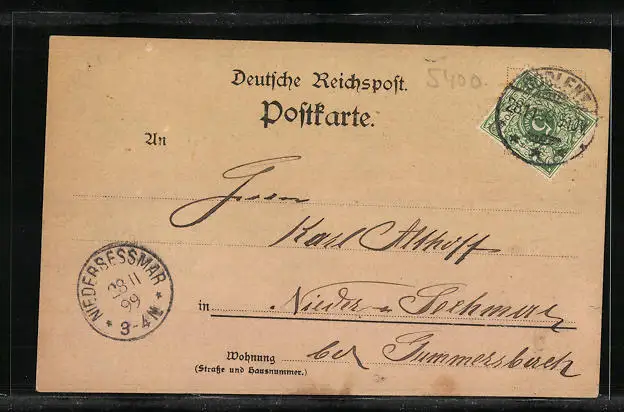 Deutsche Reichspost.
5400.
Postkarte.
COBLENZ
28.11
An
Herrn
Karl Althoff
NIEDERSESSMAR
28 11
99
* 3-4N *
in Nieder
bei Gummersbach
Wohnung
(Straße und Hausnummer.)